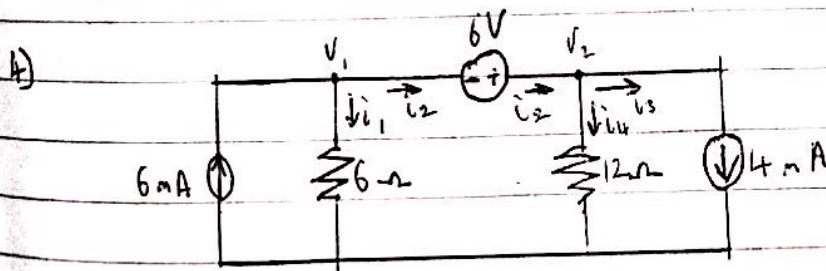 4)
6V
V₁ - + V₂
i₁ i₂ i₂ i₄ i₃
6mA 6Ω 12Ω 4mA